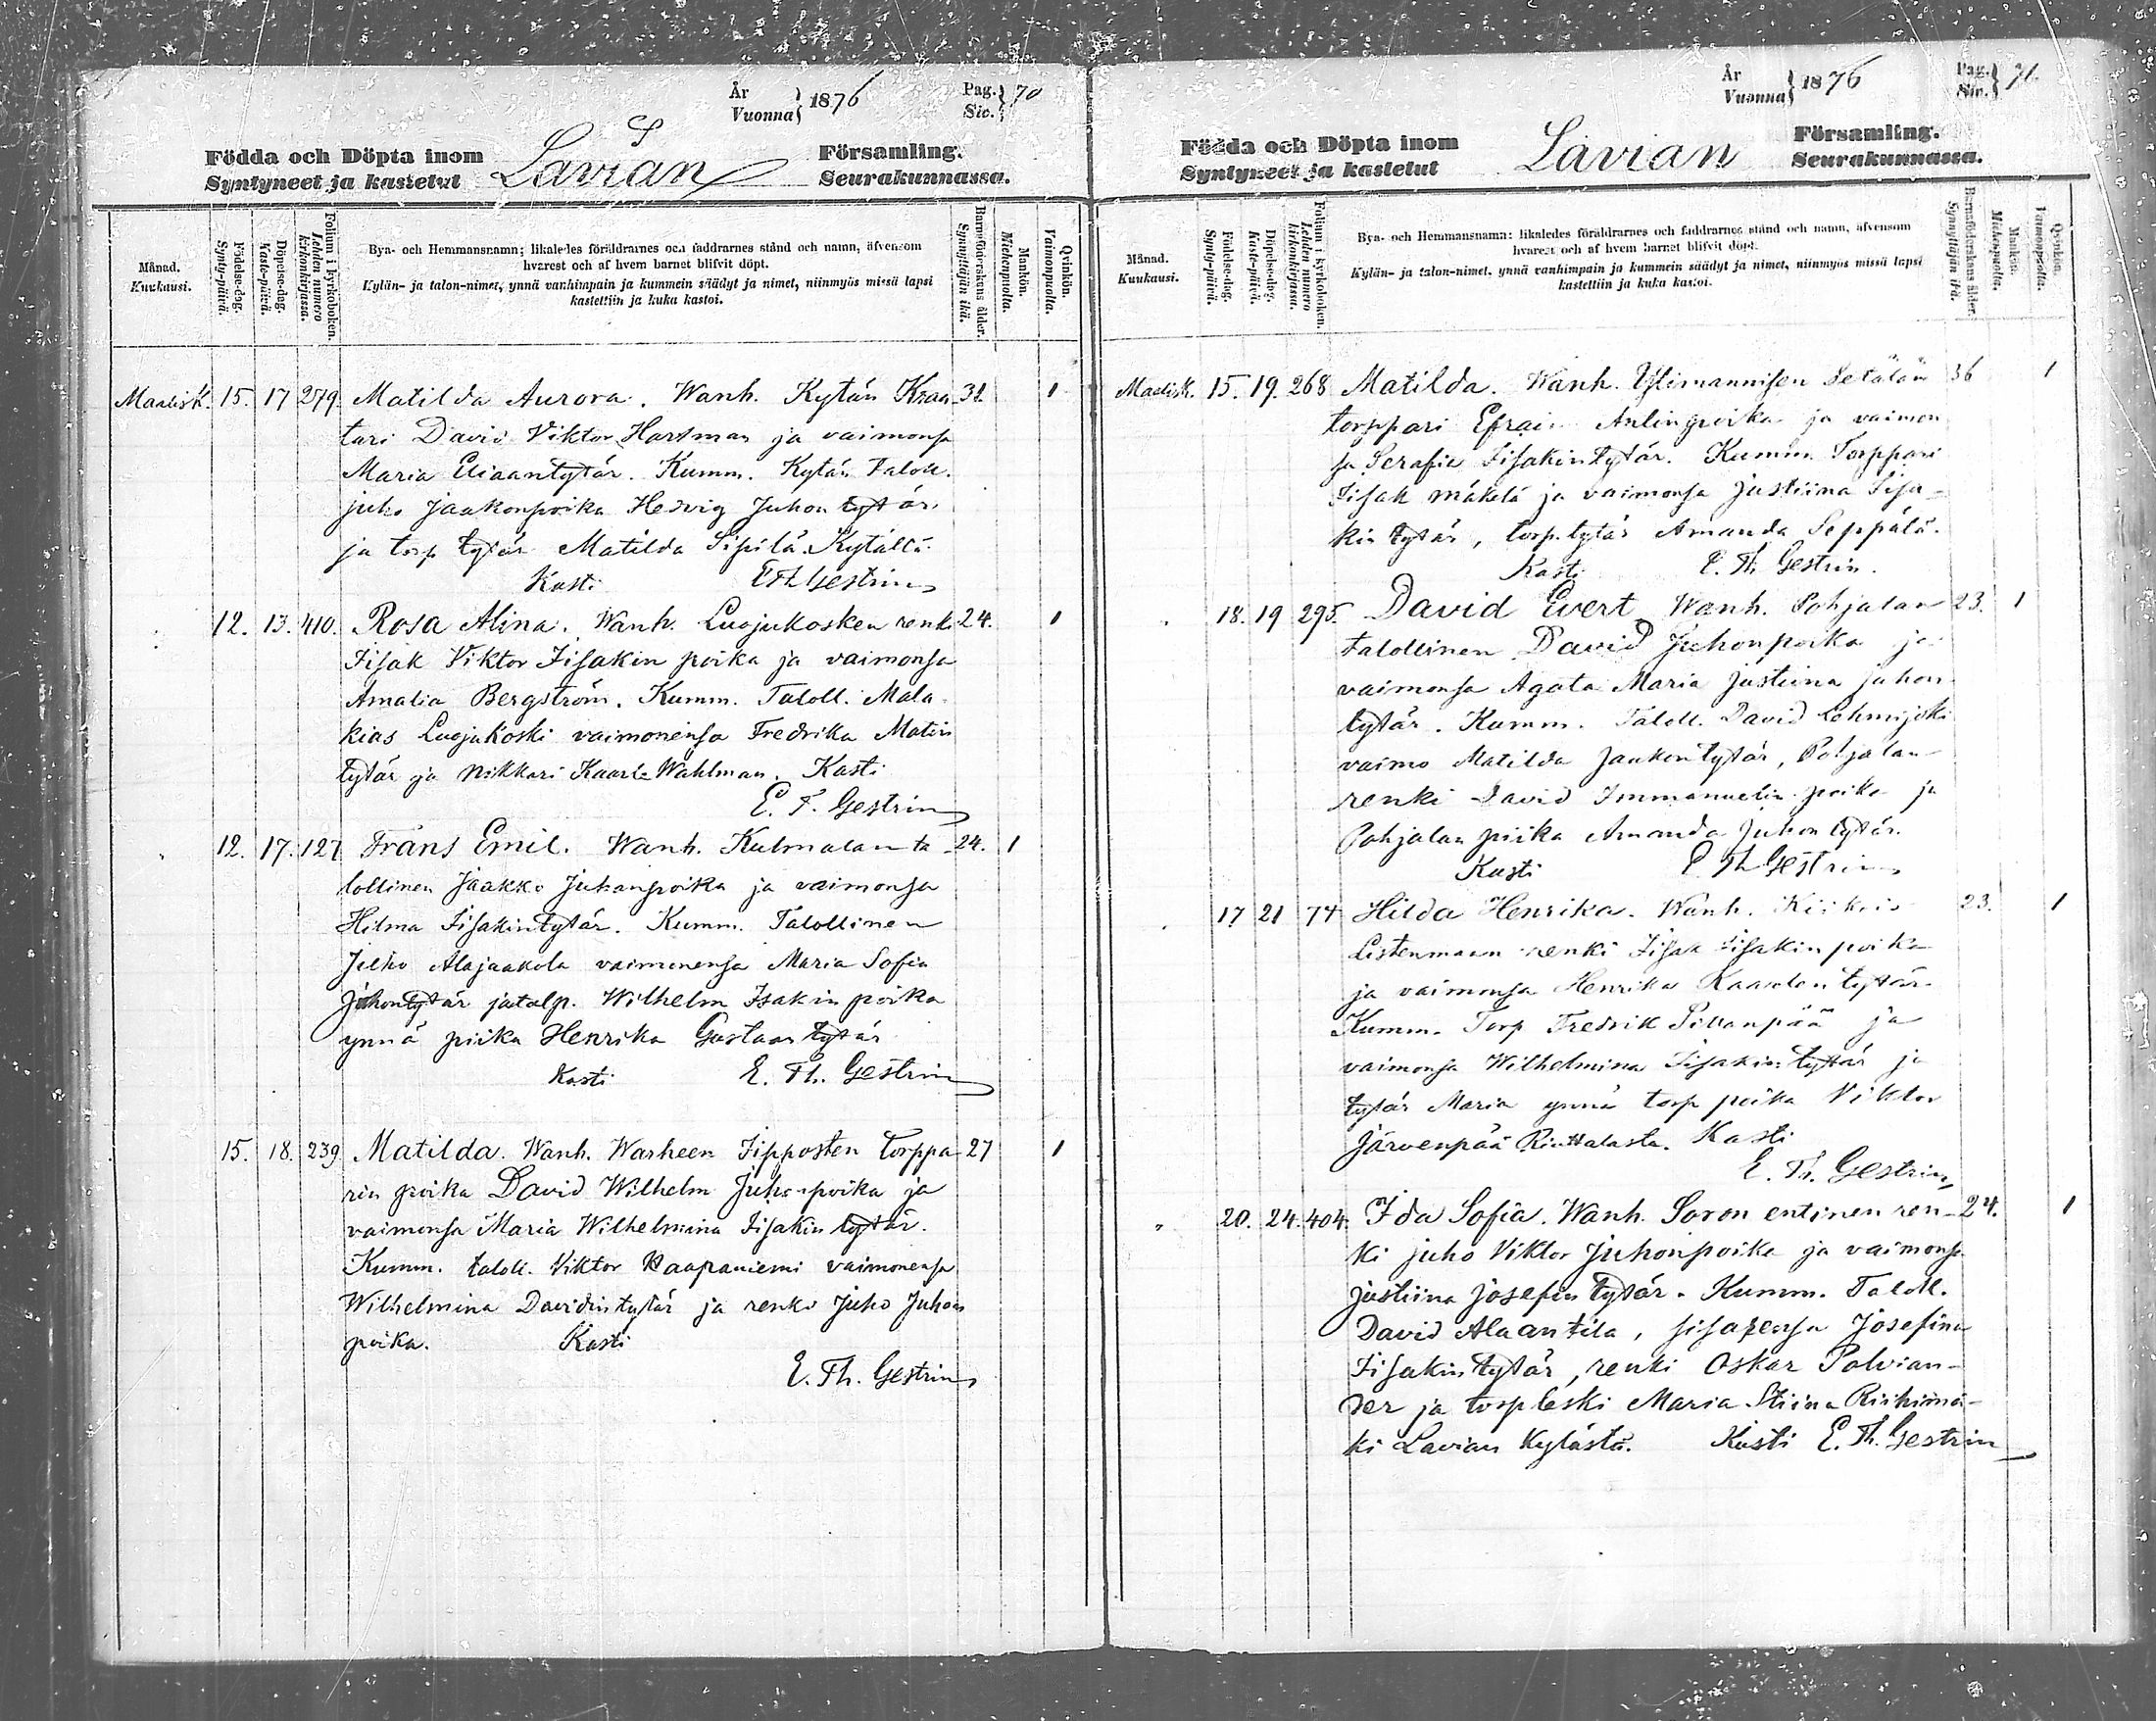 År
Vuonna } 1876
Pag.
Siv. } 70
Födda och Döpta inom
Syntyneet ja kastetut
Lavian
Församling.
Seurakunnassa.
Månad.
Kuukausi.
Födelse-dag.
Synty-päivä.
Döpelse-dag.
Kaste-päivä.
Folium i kyrkoboken.
Lehden numero kirkonkirjassa.
Bya- och Hemmansnamn; likaledes föräldrarnes och faddrarnes stånd och namn, äfvensom
hvarest och af hvem barnet blifvit döpt.
Kylän- ja talon-nimet, ynnä vanhimpain ja kummein säädyt ja nimet, niinmyös missä lapsi
kastettiin ja kuka kastoi.
Barnaföderskans ålder.
Synnyttäjän ikä.
Mankön.
Miehenpuolta.
Qvinkön.
Vaimonpuolta.
Maalisk. 15. 17 279. Matilda Aurora. Wanh. Kytän Kraa- 31. 1
tari David Viktor Hartman ja vaimonsa
Maria Eliaantytär. Kumm. Kytän Taloll.
juho Jaakonpoika Hedvig Juhon tytär.
ja torp tytär Matilda Sipilä Kytältä.
Kasti E Th Gestrin
12. 13. 410. Rosa Alina. Wanh. Luojukosken renk 24. 1
Iisak Viktor Iisakin poika ja vaimonsa
Amalia Bergström. Kumm. Taloll. Mala-
kias Luojukoski vaimonensa Fredrika Matin
tytär ja Nikkari Kaarle Wahlman. Kasti
E. T. Gestrin
12. 17. 127 Frans Emil. Wanh. Kulmalan ta- 24. 1
lollinen Jaakko Juhanpoika ja vaimonsa
Hilma Iisakintytär. Kumm. Talollinen
Juho Alajaakola vaimonensa Maria Sofia
Juhontytär ja talp. Wilhelm Isakin poika
ynnä piika Henrika Gustaan tytär
Kasti E. Th. Gestrin
15. 18. 239 Matilda. Wanh. Warheen Sipposten Torppa- 27 1
rin poika David Wilhelm Juhonpoika ja
vaimonsa Maria Wilhelmina Iisakin tytär.
Kumm. taloll. Viktor Haapaniemi vaimonensa
Wilhelmina Davidintytär ja renki Juho Juhon
poika. Kasti
E. Th. Gestrin
År
Vuonna } 1876
Pag.
Siv. } 71.
Födda och Döpta inom
Syntyneet ja kastetut
Lavian
Församling.
Seurakunnassa.
Månad.
Kuukausi.
Födelse-dag.
Synty-päivä.
Döpelse-dag.
Kaste-päivä.
Folium i kyrkoboken.
Lehden numero kirkonkirjassa.
Bya- och Hemmansnamn: likaledes föräldrarnes och faddrarnes stånd och namn, äfvensom
hvarest och af hvem barnet blifvit döpt.
Kylän- ja talon-nimet, ynnä vanhimpain ja kummein säädyt ja nimet, niinmyös missä lapsi
kastettiin ja kuka kastoi.
Barnaföderskans ålder.
Synnyttäjän ikä.
Mankön.
Miehenpuolta.
Qvinkön.
Vaimonpuolta.
Maalisk. 15. 19. 268 Matilda. Wanh. Ylimannisen Setälän 36 1
torppari Efraim Anlinpoika ja vaimon
sa Serafia Iisakintytär. Kumm. Torppari
Iisak mäkelä ja vaimonsa Justiina Iisa-
kin tytär, torp. tytär Amanda Seppälä.
Kasti E. Th Gestrin.
18. 19 295. David Evert. Wanh. Pohjalan 23. 1
talollinen David Juhonpoika ja
vaimonsa Agata Maria Justiina juhon
tytär. Kumm. Taloll. David Lehmijoki
vaimo Matilda Jaakontytär, Pohjalan
renki David Immanuelin poika ja
Pohjalan piika Amanda Juhon tytär.
Kasti E Th Gestrin
17 21 74 Hilda Henrika. Wanh. 23. 1
Listenmaan renki Iisak Iisakin poika
ja vaimonsa Henrika Kaarlon tytär.
Kumm. Torp Fredrik Pillanpää ja
vaimonsa Wilhelmina Iisakin tytär ja
tytär Maria ynnä torp poika Viktor
Järvenpää Riuttalasta. Kasti
E. Th. Gestrin
20. 24. 404. Ida Sofia. Wanh. Soron entinen ren- 24. 1
ki juho Viktor Juhonpoika ja vaimonsa
justiina josefin tytär. Kumm. Taloll.
David Alaantila, sisarensa Josefina
Iisakin tytär, renki Oskar Polvian-
der ja torp leski Maria Stiina Riihimä-
ki Lavian Kylästä. Kasti E. Th. Gestrin